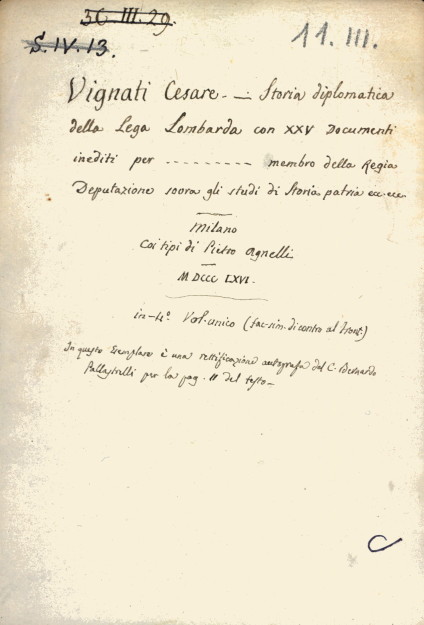 3C.III.29.
S.IV.13.
11.III.
Vignati Cesare - — Storia diplomatica
della Lega Lombarda con XXV Documenti
inediti per --------- membro della Regia
Deputazione sovra gli studi di Storia patria ec. ec.
Milano
Coi tipi di Pietro Agnelli
MDCCC LXVI.
in-4º Vol. unico (fac-sim. di contro al front.)
In questo Esemplare è una rettificazione autografa del C. Bernardo
Pallastrelli per la pag. 11 del testo—